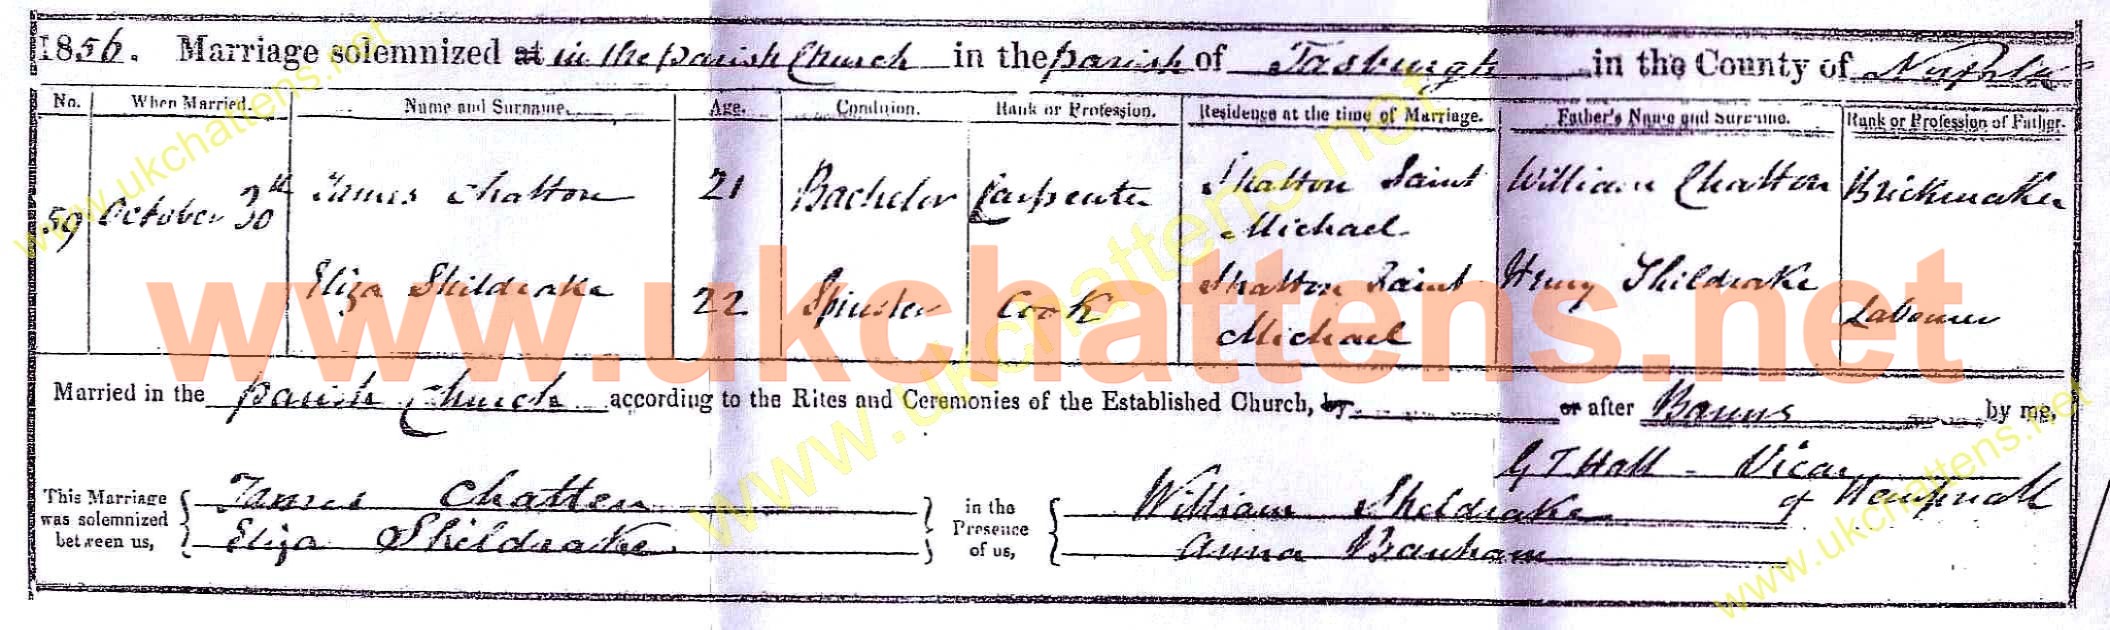 1856. Marriage solemnized at in the parish Church in the parish of Tasburgh in the County of Norfolk
No. When Married. Name and Surname. Age. Condition. Rank or Profession. Residence at the time of Marriage. Father's Name and Surname. Rank or Profession of Father.
59 October 30th James Chatton 21 Bachelor Carpenter Stratton Saint Michael William Chatton Brickmaker
Eliza Shildrake 22 Spinster Cook Stratton Saint Michael Henry Shildrake Labourer
Married in the parish Church according to the Rites and Ceremonies of the Established Church, by or after Banns by me,
G T Hall - Vicar of Hempnall
This Marriage was solemnized between us, James Chatten Eliza Shildrake in the Presence of us, William Sheldrake Anna Branham
www.ukchattens.net
www.ukchattens.net
www.ukchattens.net
www.ukchattens.net